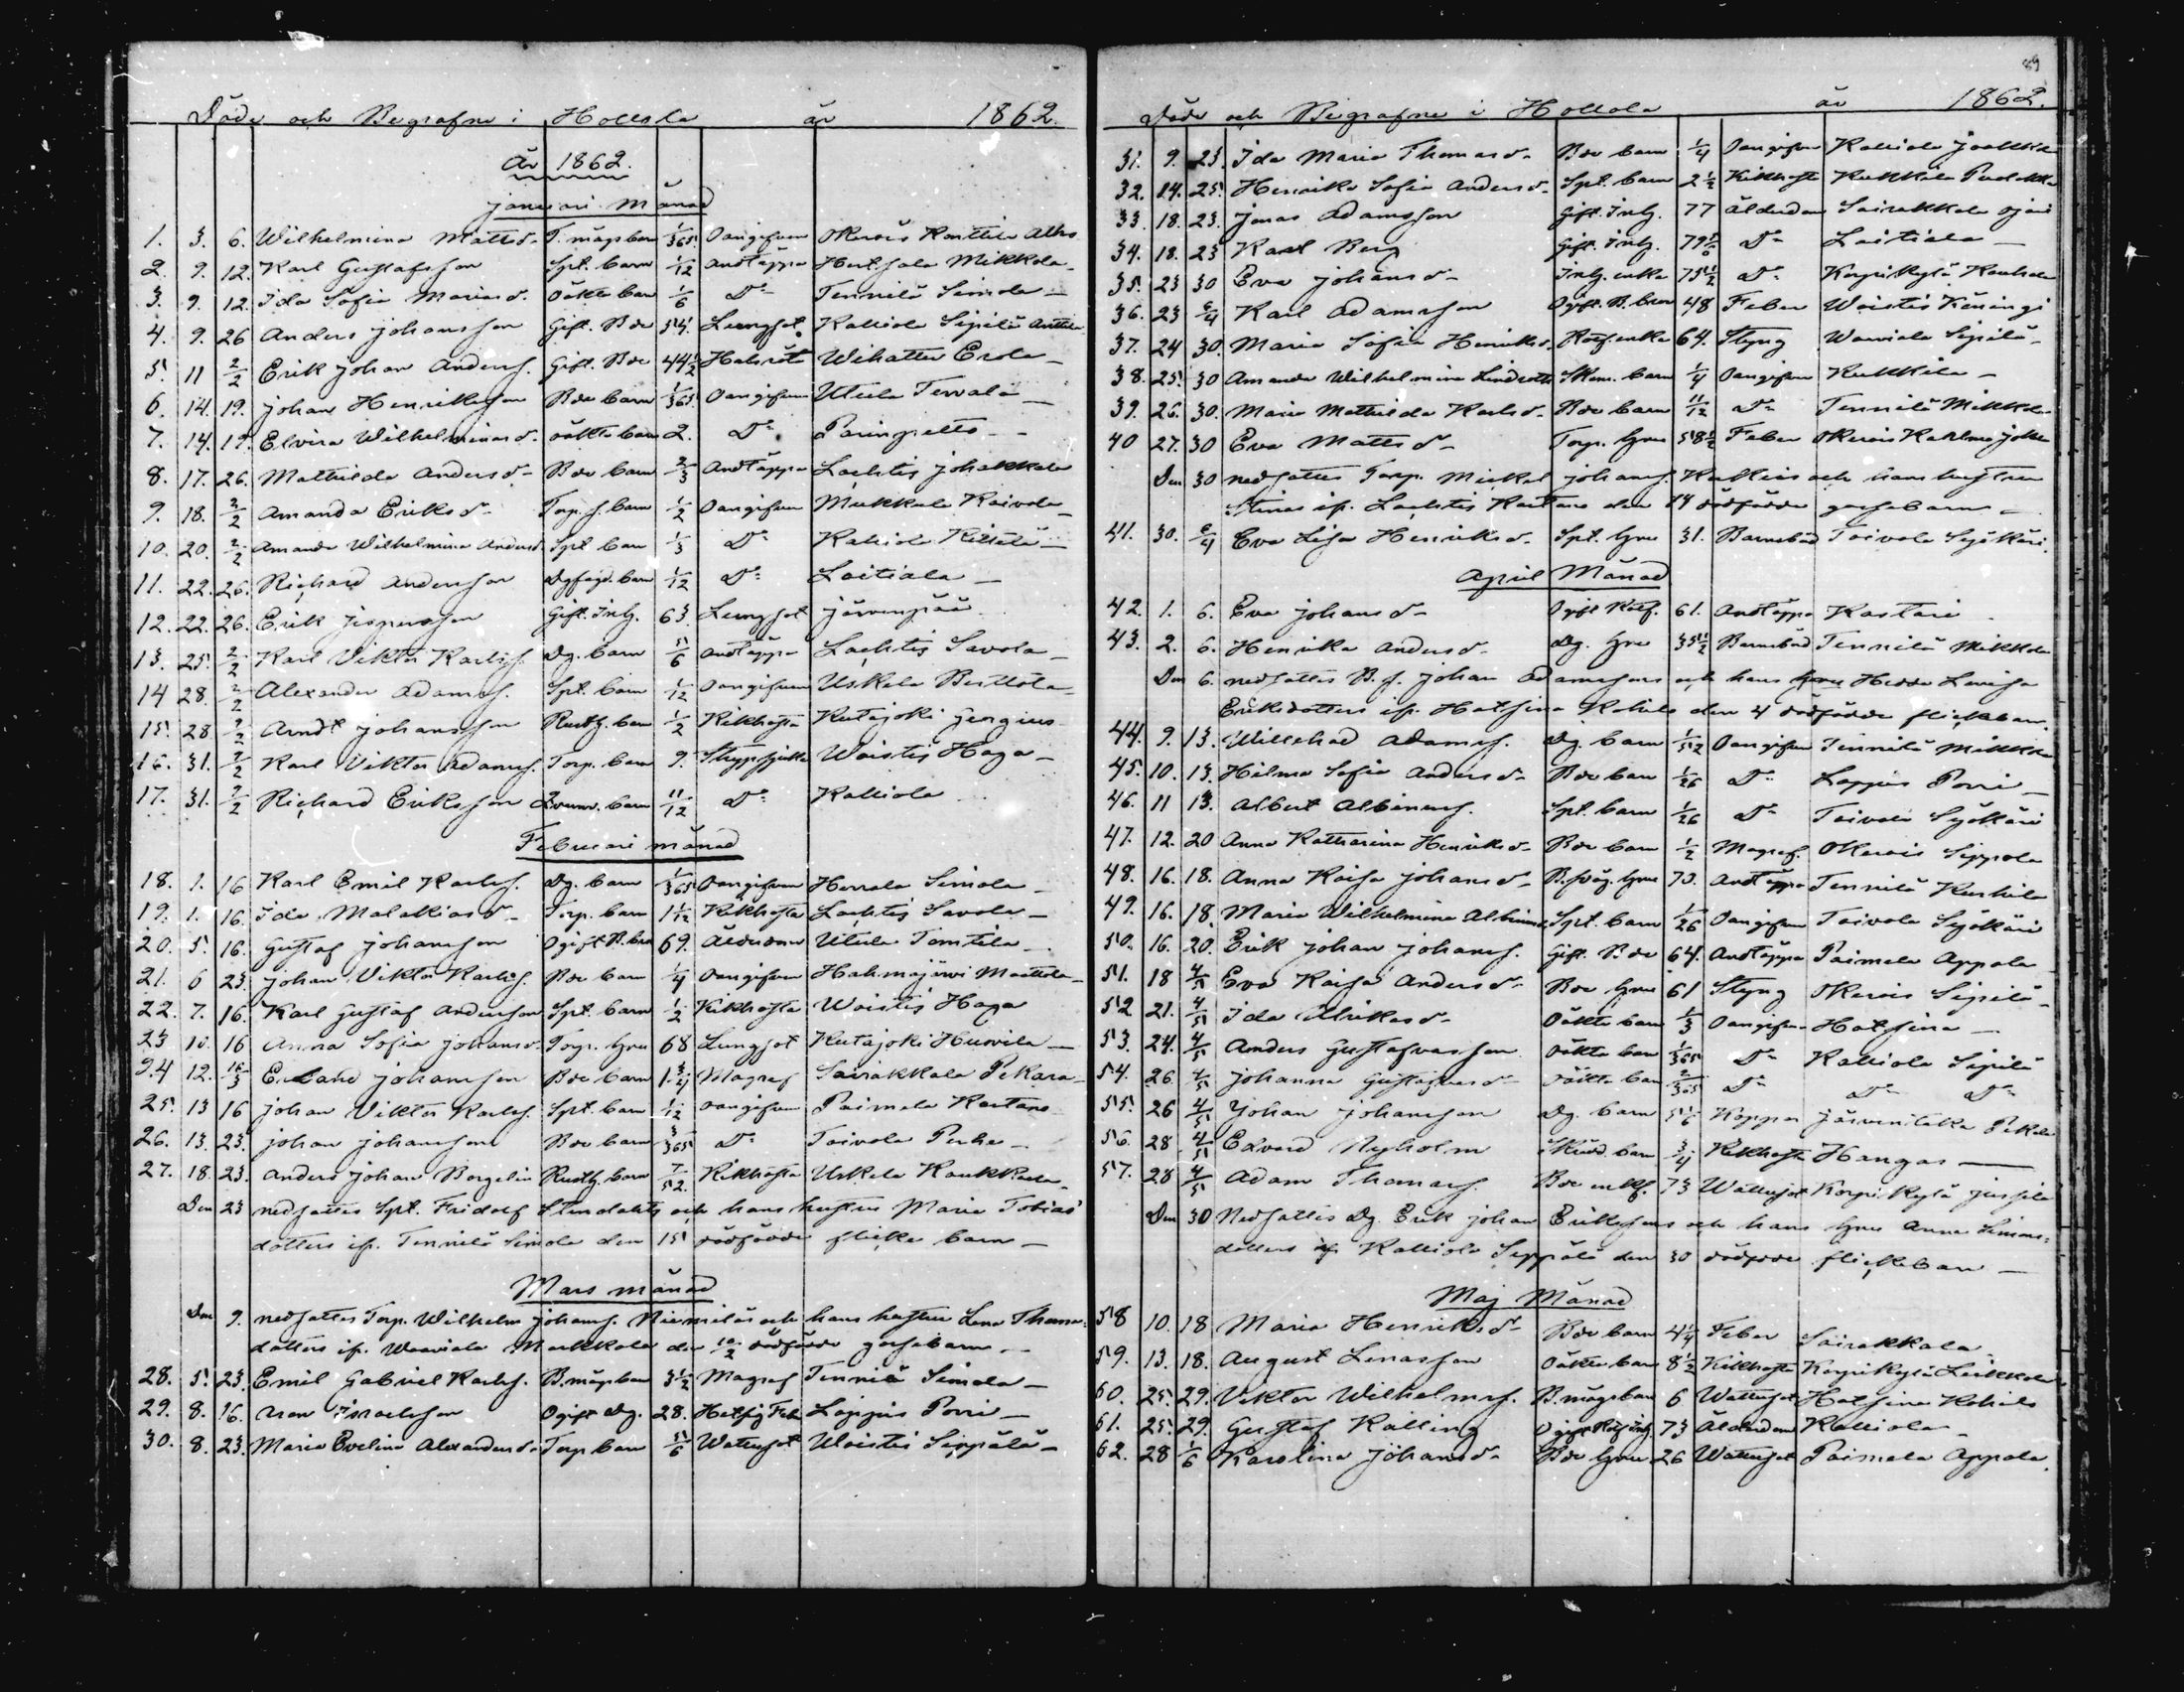 Döde och Begrafne i Hollola år 1862.
År 1862.
Januari Månad
1. 3. 6. Wilhelmina Mattsd. T. mågs barn 1/365 Oangifven Okerois Konttila Alho
2. 9. 12. Karl Gustafsson Spt. barn 1/12 Andtäppa Hertsala Mikkola
3. 9. 12. Ida Sofia Mariasd. Oäkta barn 1/6 Do Tennilä Simola
4. 9. 26 Anders Johansson Gift. Bde 54. Lungsot Kalliola Sipilä Anttila
5. 11 2/2 Erik Johan Anders. Gift. Bde 44 1/2 Halsröta Wihattu Erola
6. 14. 19. Johan Henriksson Bde barn 1/365 Oangifven Utula Tervalä
7. 14. 19. Elvira Wilhelminasd. oäkta barn 2. Do Paringelto
8. 17. 26. Mathilda Andersd. Bde barn 2/3 Andtäppa Lachtis Johakkala
9. 18. 2/2 Amanda Eriksd. Torp. s. barn 1/2 Oangifven Mukkula Kaivola
10. 20. 2/2 Amanda Wilhelmina Andersd. Spt. barn 1/3 Do Kaliola Kittelä
11. 22. 26. Richard Andersson Dgfogd. barn 1/12 Do Laitiala
12. 22. 26. Erik Jespersson Gift. Inh. 63. Lungsot Järvenpää
13. 25. 2/2 Karl Viktor Karlss. Dg. barn 5/6 Andtäppa Lachtis Savola
14 28. 2/2 Alexander Adamss. Spt. barn 1/12 Oangifven Uskela Berttola
15. 28 2/2 Arndt Johansson Rusth. barn 1/2 Kikhosta Kutajoki Jeogius
16. 31. 2/2 Karl Viktor Adamss. Torp. barn 9. Strypsjuka Woistis Haga
17. 31. 2/2 Richard Eriksson barn 11/12 Do Kalliola
Februari månad
18. 1. 16 Karl Emil Karlss. Dg. barn 1/365 Oangifven Herrala Simola
19. 1. 16. Ida Malakiasd. Torp. barn 1 1/12 Kikhosta Lachtis Savola
20. 5. 16. Gustaf Johansson Ogift B. bror 69. Ålderdom Utula Tomtila
21. 6 23. Johan Viktor Karlss. Bde barn 1/4 Oangifven Hahmajärvi Mattila
22. 7. 16. Karl Gustaf Andersson Spt. barn 1/2 Kikhosta Woistis Haga
23 10. 16 Anna Sofia Johansd. Torp. hru 68 Lungsot Kutajoki Huovila
24 12. 16/3 Erland Johansson Bde barn 1 3/4 Magref Sairakkala Pekara
25. 13 16 Johan Viktor Karlss. Spt. barn 1/12 Oangifven Paimela Kartano
26. 13. 23. Johan Johansson Bde barn 3/365 Do Toivola Perhe
27. 18. 23. Anders Johan Borgelin Rusth. barn 7/52. Kikhosta Uskela Kaukkala
Den 23 nedsattes Spt. Fridolf Stendahls och hans hustrus Maria Tobias
dotters ifr. Tennilä Simola den 15 dödfödde flicke barn
Mars månad
Den 9. nedsattes Torp. Wilhelm Johanss. Niemiläs och hans hustru Lena Thomas
dotters ifr. Waaniala Markkola den 10/2 dödfödde gossebarn
28. 5. 23. Emil Gabriel Karlss. B. mågs barn 3 1/2 Magref Tennilä Simola
29. 8. 16. Israelsson Ogift Dg. 28. Hetsig Feb. Loppis Porri
30. 8. 23. Maria Evelina Alexandersd. Torp barn 5/6 Watusot Woistis Seppälä
89
Döde och Begrafne i Hollola år 1862.
31. 9. 23. Ida Maria Thomasd. Bde barn 1/4 Oangifven Kalliola Jaakkola
32. 14. 25. Henrika Sofia Andersd. Spt. barn 2 1/2 Kikhosta Kukkila
33. 18. 23. Jonas Adamsson Gift. Inh. 77 ålderdom Sairakkala Ojais
34. 18. 23 Karl Berg Gift. Inh. 79 Do Laitiala
35. 23 30 Eva Johansd. Inh. enka 75 1/2 Do Korpikylä Kauhala
36. 23 6/4 Karl Adamsson Ogift. B. bror 48 Feber Woistis Käningi
37. 24 30. Maria Sofia Henriksd. Rotf. enka 64. Styng Waaniala Sipilä
38. 25. 30 Amanda Wilhelmina Lindroth Skom. barn 1/4 Oangifven Kukkila
39. 26. 30. Maria Mathilda Karlsd. Bde barn 11/12 Do Tennilä Mikkola
40 27. 30 Eva Mattsd. Torp. hru 58 1/2 Feber Okerois
Den 30 nedsattes Torp. Mickel Johanss. och hans hustrus
Stinas ifr. Lachtis Kartano den 14 dödfödde gossebarn
41. 30. 6/4 Eva Lisa Henriksd. Spt. hru 31. Barnsbörd Toivola Syökäri
April Månad
42. 1. 6. Eva Johansd. Ogift Rotf. 61. Andtäppa Kastari
43. 2. 6. Henrika Andersd. Dg. hru 35 11/12 Barnsbörd Tennilä Mikkola
Den 6. nedsattes B. s. Johan Adamssons och hans hrus Hedda Lovisa
Eriksdotters ifr. Hatsina Kokila den 4 dödfödde flickebarn
44. 9. 13. Willehad Adamss. Dg barn 1/52 Oangifven Tennilä Mikkola
45. 10. 13. Hilma Sofia Andersd. Bde barn 1/26 Do Loppis Porri
46. 11 13. Albert Albinuss. Spt. barn 1/26 Do Toivola Syökäri
47. 12. 20 Anna Katharina Henriksd. Bde barn 1/2 Magref. Okerois Seppola
48. 16. 18. Anna Kaisa Johansd. B. svåg. hru 70. Andtäppa Tennilä Kurkila
49. 16. 18. Maria Wilhelmina Albinusd. Spt. barn 1/26 Oangifven Toivola Syökäri
50. 16. 20. Erik Johan Johanss. Gift. Bde 64. Andtäppa Paimela Appola
51. 18 4/5 Eva Kaisa Andersd. Bde hru 61 Styng Okerois Sipilä
52 21. 4/5 Ida Ulrikasd. Oäkta barn 1/3 Oangifven Hatsina
53. 24. 4/5 Anders Gustafvasson Oäkta barn 1/365 Do Kalliola Sipilä
54. 26. 4/5 Johanna Gustafvasd. Oäkta barn 2/365 Do Do Do
55. 26 4/5 Johan Johansson Dg. barn 5 1/6 Koppor Järventaka Pekola
56. 28 4/5 Edvard Nyholm Skrädd. barn 3/4 Kikhosta Hangas
57. 28 4/5 Adam Thomass. Bde enkl. 73 Wattusot Korpikylä Jussila
Den 30 Nedsattes Dg. Erik Johan Erikssons och hans hru Anna Simons
dotters ifr. Kalliola Seppälä den 30 dödfödde flickebarn
Maj Månad
58 10. 18 Maria Henriksd. Bde barn 4 1/4 Feber Sairakkala
59. 13. 18. August Lenasson Oäkta barn 8 1/2 Kikhosta Korpikylä Leikkola
60. 25. 29. Viktor Wilhelmss. B. mågs barn 6 Wattusot Hatsina Kokila
61. 25. 29. Gustaf Kalling Ogift Rotf. Inh. 73 Ålderdom Kalliola
62. 28 1/6 Karolina Johansd. Bde hru 26 Wattusot Paimela Appola